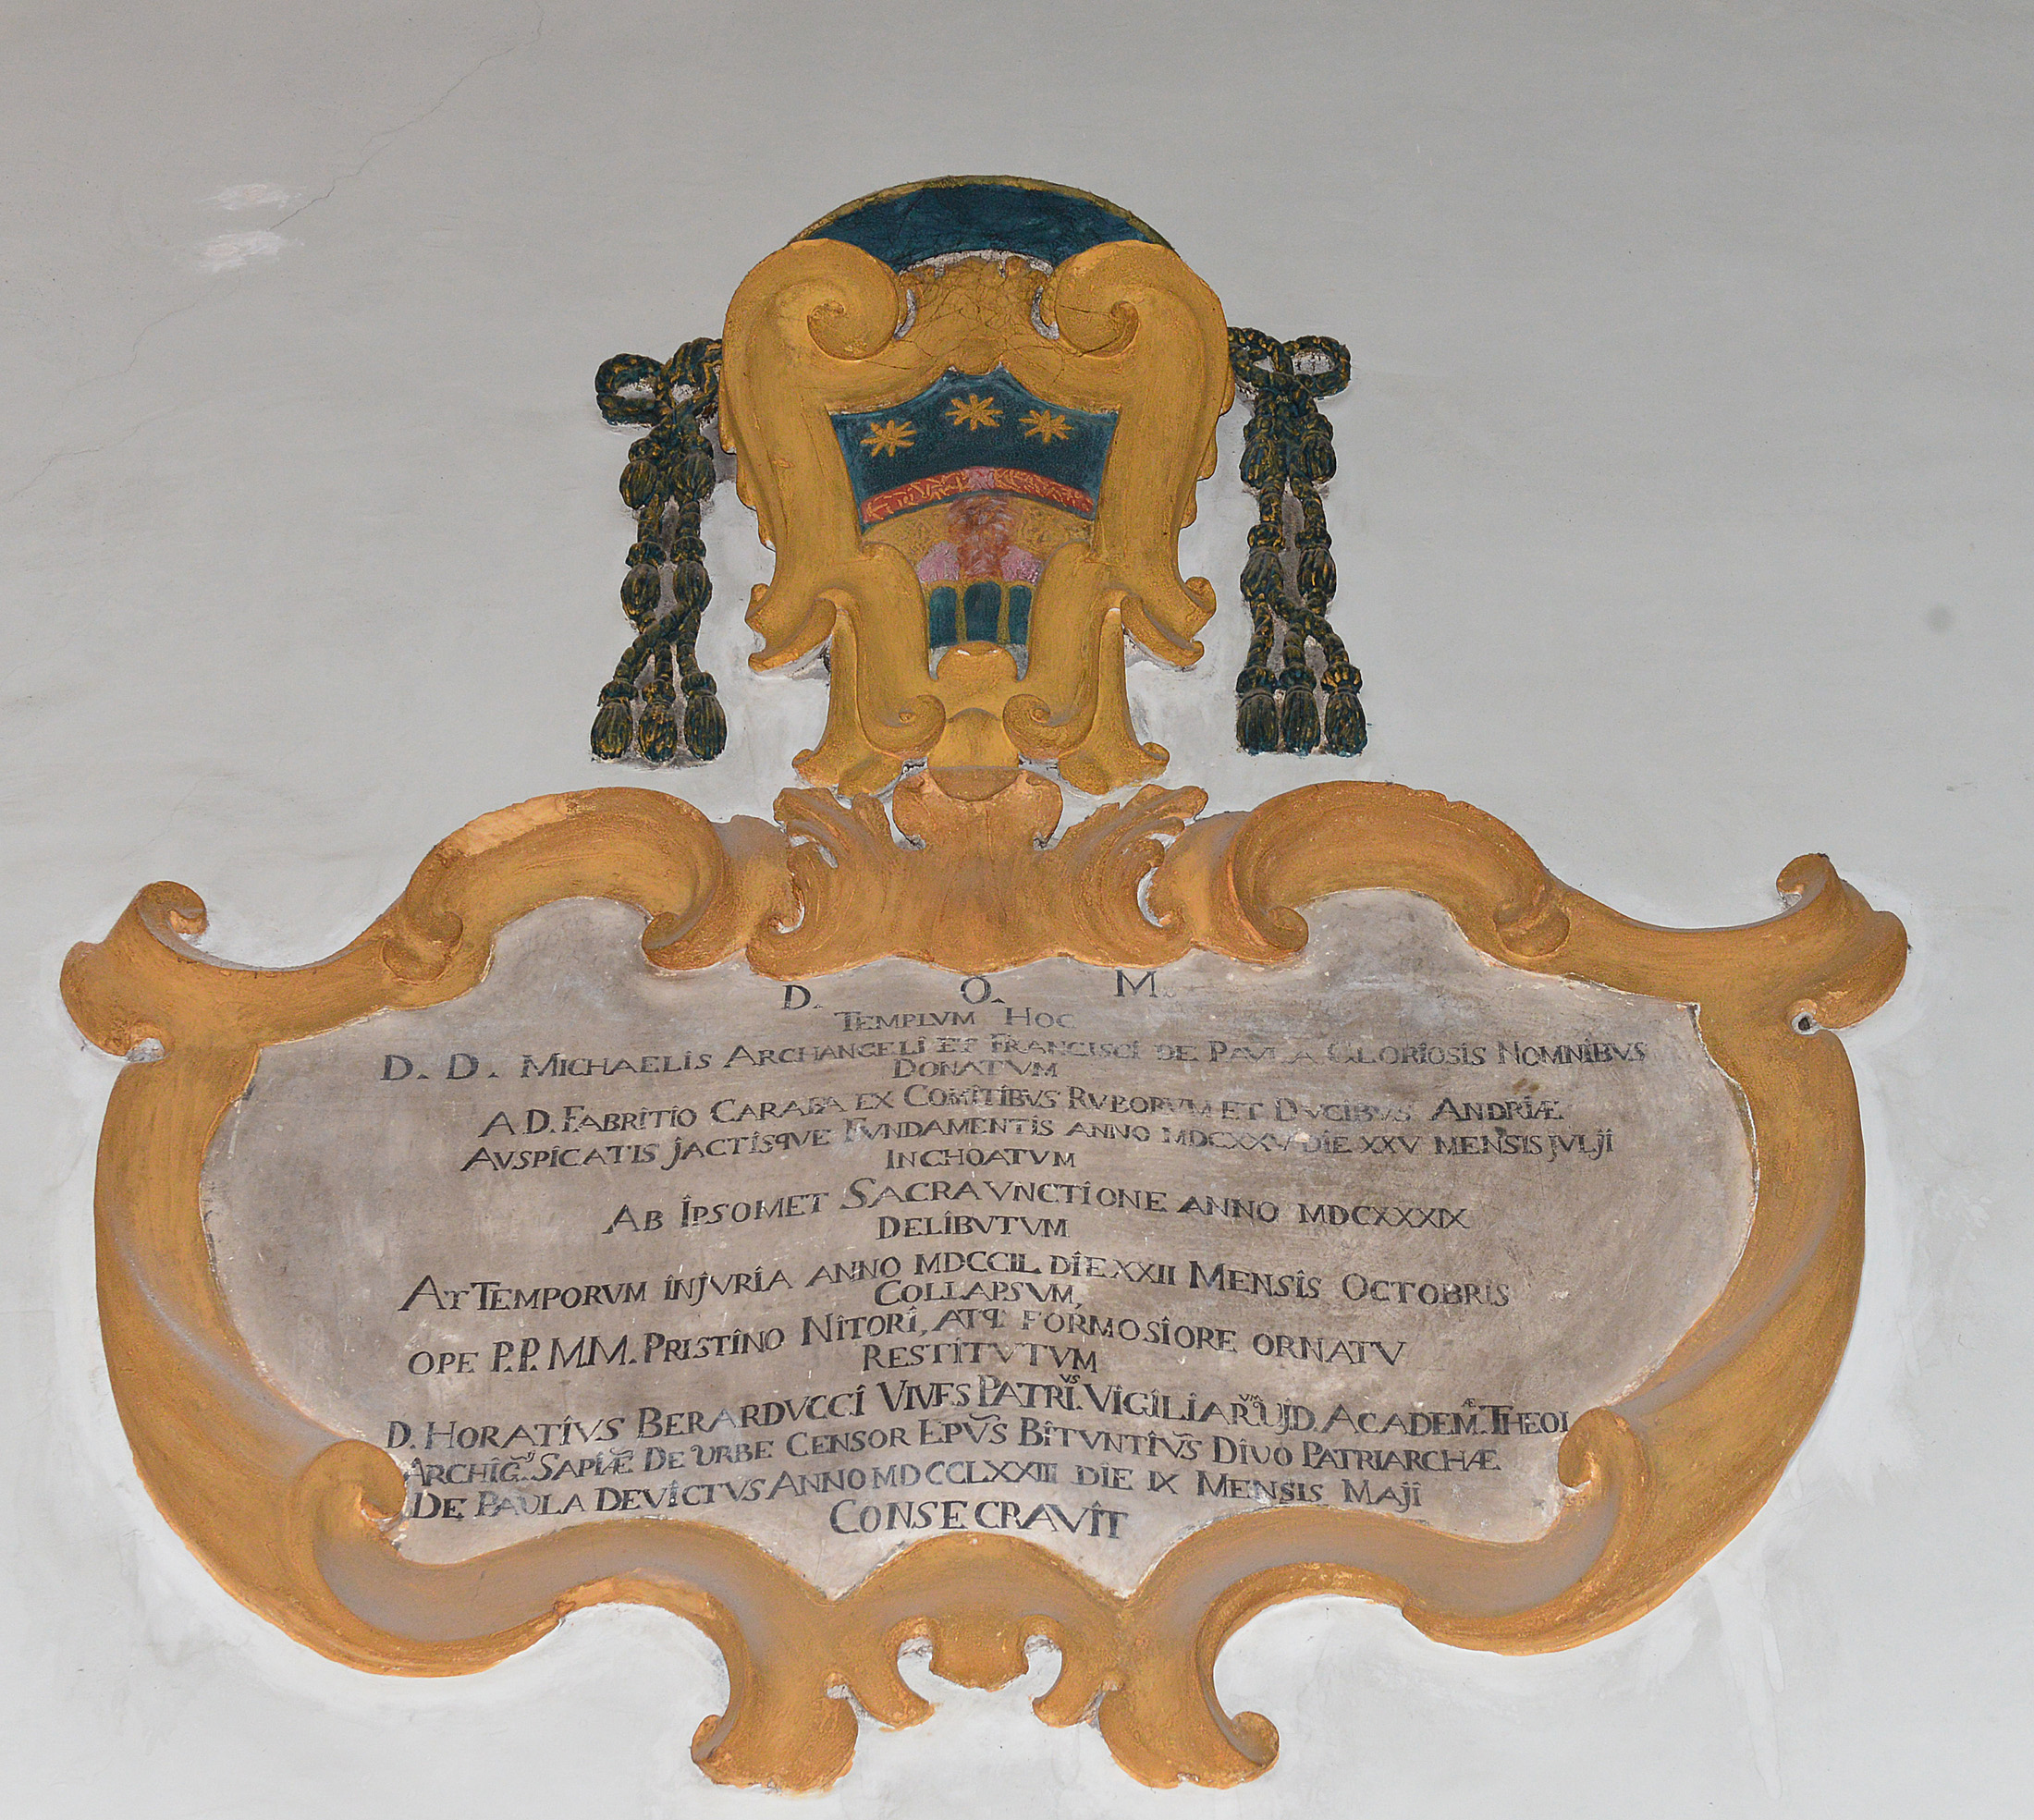 D. O. M.
TEMPLVM HOC
D. D. MICHAELIS ARCHANGELI ET FRANCISCI DE PAVLA GLORIOSIS NOMNIBVS
DONATVM
A D. FABRITIO CARAFA EX COMITIBVS RVBORVM ET DVCIBVS ANDRIÆ
AVSPICATIS JACTISQVE FVNDAMENTIS ANNO MDCXXV DIE XXV MENSIS JVLJI
INCHOATVM
AB IPSOMET SACRA VNCTIONE ANNO MDCXXXIX
DELIBVTVM
AT TEMPORVM INJVRIA ANNO MDCCIL DIE XXII MENSIS OCTOBRIS
COLLAPSVM,
OPE P.P. M.M. PRISTINO NITORI, ATQ. FORMOSIORE ORNATV
RESTITVTVM
D. HORATIVS BERARDVCCI VIVES PATRI.VS VIGILIAR.VM UJD. ACADEM.Æ THEOL
ARCHIG. SAPIÆ DE URBE CENSOR EPVS BITVNTIVS DIVO PATRIARCHÆ
DE PAULA DEVICTVS ANNO MDCCLXXIII DIE IX MENSIS MAJI
CONSECRAVIT